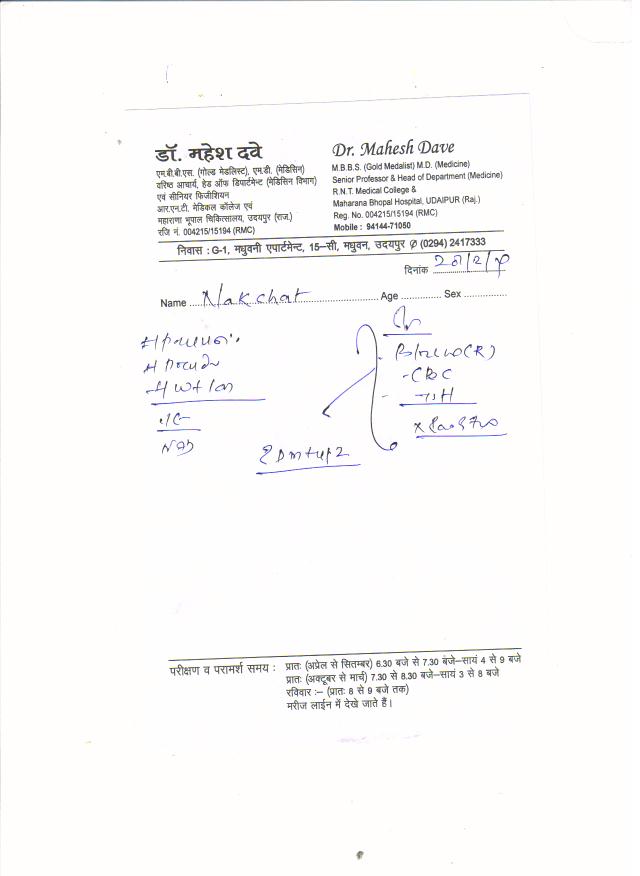 डॉ. महेश दवे
एम.बी.बी.एस. (गोल्ड मेडलिस्ट), एम.डी. (मेडिसिन)
वरिष्ठ आचार्य, हेड ऑफ डिपार्टमेन्ट (मेडिसिन विभाग)
एवं सीनियर फिजीशियन
आर.एन.टी. मेडिकल कॉलेज एवं
महाराणा भूपाल चिकित्सालय, उदयपुर (राज.)
रजि नं. 004215/15194 (RMC)
Dr. Mahesh Dave
M.B.B.S. (Gold Medalist) M.D. (Medicine)
Senior Professor & Head of Department (Medicine)
R.N.T. Medical College &
Maharana Bhopal Hospital, UDAIPUR (Raj.)
Reg. No. 004215/15194 (RMC)
Mobile : 94144-71050
निवास : G-1, मधुवनी एपार्टमेन्ट, 15–सी, मधुवन, उदयपुर ✆ (0294) 2417333
दिनांक
Name Nakchat Age Sex
B/Sugar (R)
- CBC
NAD
परीक्षण व परामर्श समय : प्रातः (अप्रेल से सितम्बर) 6.30 बजे से 7.30 बजे–सायं 4 से 9 बजे
प्रातः (अक्टूबर से मार्च) 7.30 से 8.30 बजे–सायं 3 से 8 बजे
रविवार :– (प्रातः 8 से 9 बजे तक)
मरीज लाईन में देखे जाते हैं।